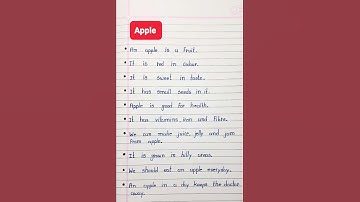 Apple
An apple is a fruit.
It is red in colour.
It is sweet in taste.
It has small seeds in it.
Apple is good for health.
It has vitamins, iron and fibre.
We can make juice, jelly and jam
from apple.
It is grown in hilly areas.
We should eat an apple everyday.
An apple in a day keeps the doctor
away.